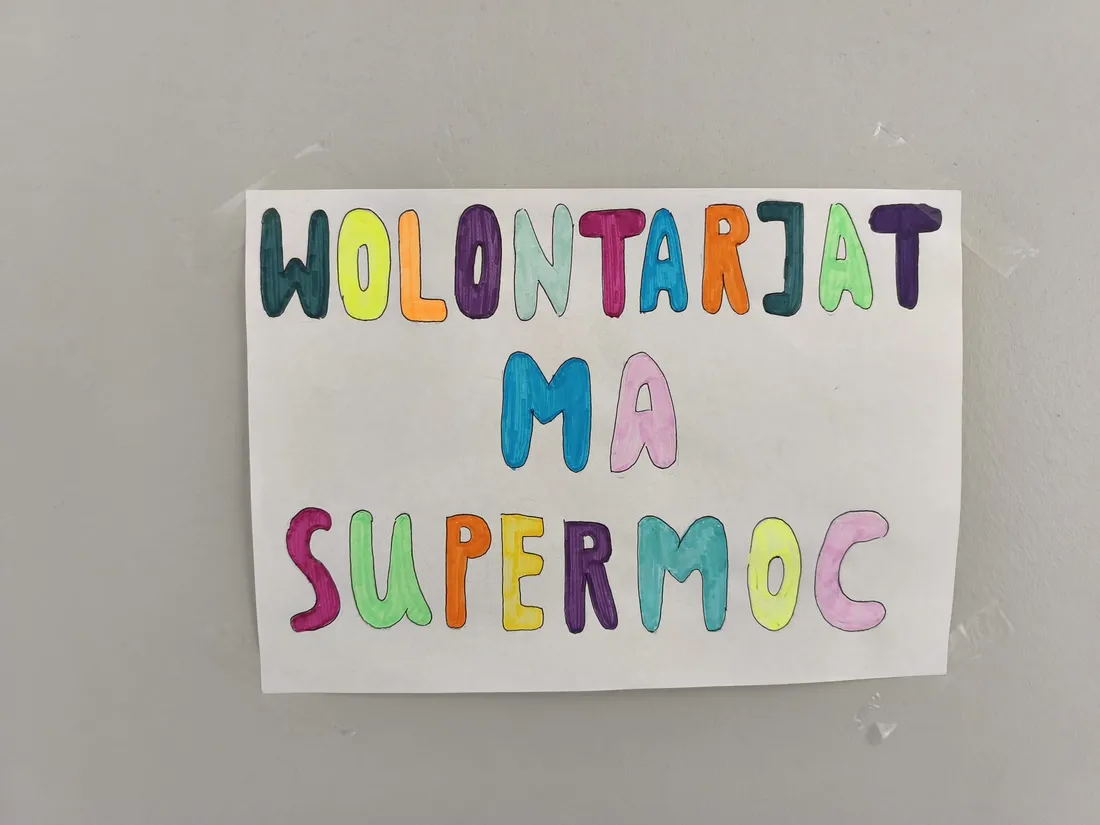 WOLONTARJAT
MA
SUPERMOC